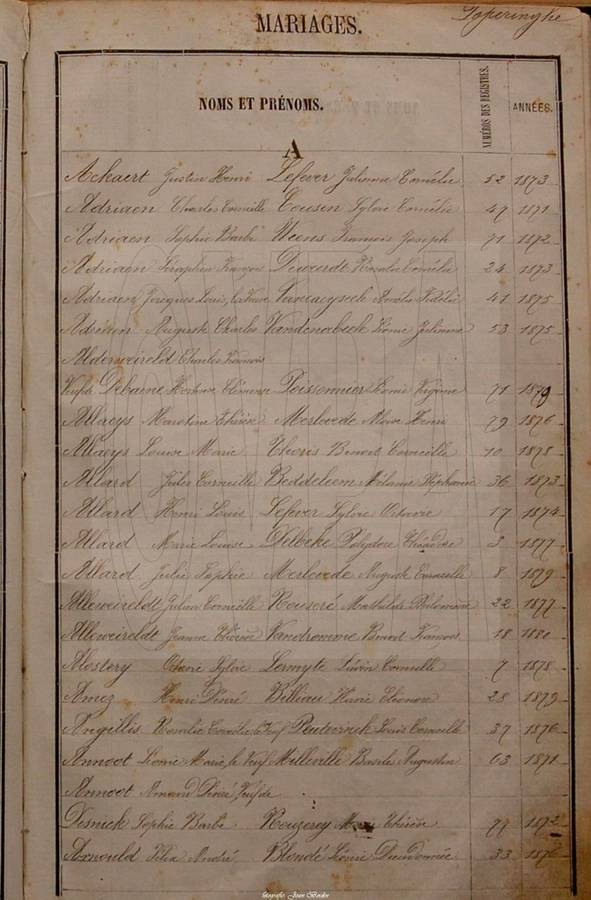 Poperinghe
MARIAGES.
NOMS ET PRÉNOMS. NUMÉROS DES REGISTRES. ANNÉES.
A
Ackaert Justin Henri Lefever Julienne Cornélie 52 1873
Adriaen Charles Corneille Cousen Sylvie Cornélie 47 1871
Adriaen Sophie Barbe Weens François Joseph 71 1872
Adriaen Séraphin François Dewerdt Rosalie Cornélie 24 1873
Adriaen Jacques Louis, Amélie Fidélie 41 1875
Adriaen Auguste Charles Vandenabeele Léonie Julienne 53 1875
Alderweireld Charles François
Veuf de Debarne Hortense Clémence Poissonnier Léonie Virginie 71 1879
Allaeys Thérèse Merlevede Henri 79 1876
Allaeys Louise Marie Thoris Benoit Corneille 10 1878
Allard Jules Corneille Beddeleem Mélanie Stéphanie 36 1873
Allard Henri Louis Lefever Sylvie Octavie 17 1874
Allard Marie Louise Delbeke Polydore Théodore 3 1877
Allard Julie Sophie Merlevede Auguste Corneille 8 1879
Alleweireldt Julien Corneille Rouseré Mathilde Philomène 22 1877
Alleweireldt Jeanne Thérèse Vandromme Benoit François 18 1880
Alostery Sylvie Lermyte Liévin Corneille 7 1878
Amez Henri Désiré Billiau Marie Eléonore 28 1879
Angillis Rosalie Cornélie Louis Corneille 37 1876
Annoot Léonie Marie, le Veuf Milleville Basiles Augustin 63 1871
Annoot Amand Désiré Veuf de
Desnick Sophie Barbe Rouzerey Marie Thérèse 79 1872
Arnould Félix André Blondé Léonie Dieudonnée 33 1876
fotografie: Joan Bordos